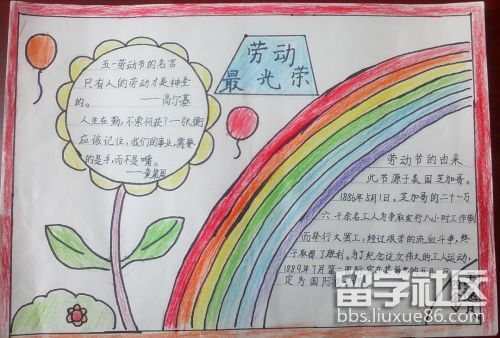 劳动
最光荣
五一劳动节的名言
只有人的劳动才是神圣
的。——高尔基
人生在勤,不索何获?——张衡
应该记住,我们的事业,需要
的是手,而不是嘴。
——童第周
劳动节的由来
此节源于美国芝加哥。
1886年5月1日,芝加哥的二十一万
六千余名工人为争取实行八小时工作制
而举行大罢工,经过艰苦的流血斗争,终
于取得了胜利。为了纪念这次伟大的工人运动,
1889年7月第二国际
定为国际
留学社区
bbs.liuxue86.com